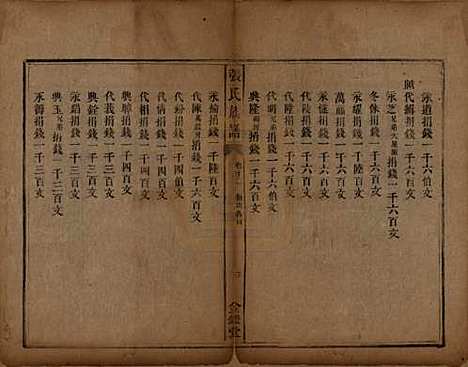 永道捐錢一千六伯文
興代捐錢一千六百文
永芝捐錢一千六百文
冬保捐錢一千六百文
永耀捐錢一千陸百文
萬捐錢一千六百文
永恆捐錢一千六百文
代陵捐錢一千六百文
代隆捐錢一千六百文
代明捐錢一千六伯文
興隆捐錢一千六百文
張氏族譜
金鑑堂
永綸捐錢一千陸百文
代陳捐錢一千四百文
代裕捐錢一千四伯文
代炳捐錢一千四百文
興聯捐錢一千四百文
代義捐錢一千三百文
興銓捐錢一千三百文
興玉兄弟捐錢一千三百文
永錫捐錢一千三百文